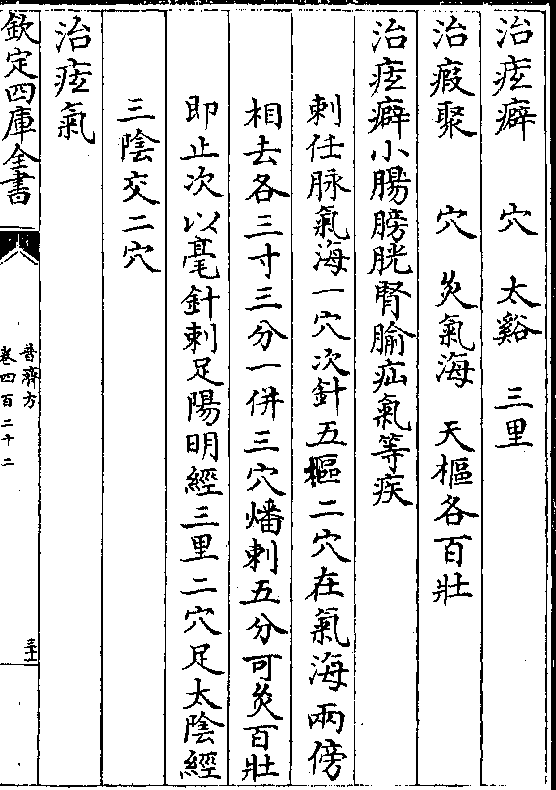 治痃癖　穴　太谿　三里
治瘕聚　穴　灸氣海　天樞各百壯
治痃癖小腸膀胱腎腧疝氣等疾
刺任脉氣海一穴次針五樞二穴在氣海兩傍
相去各三寸三分一併三穴燔刺五分可灸百壯
即止次以毫針刺足陽明經三里二穴足太陰經
三陰交二穴
治痃氣
欽定四庫全書
普濟方
卷四百二十二